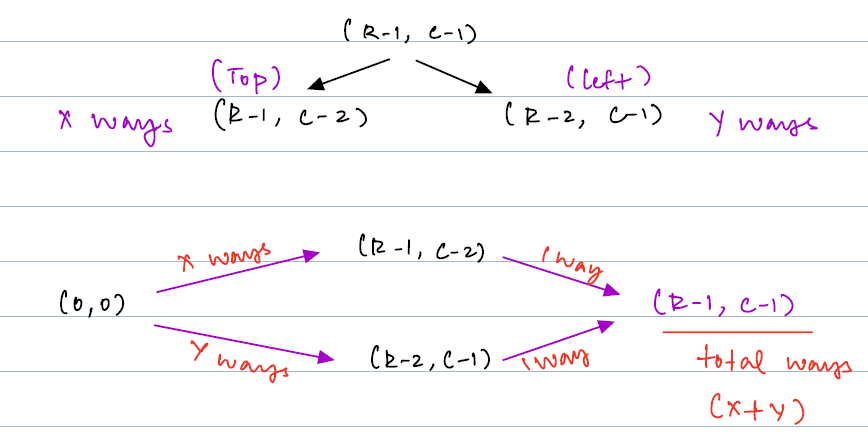 (R-1, C-1)
(Top) (left)
X ways (R-1, C-2) (R-2, C-1) Y ways
X ways (R-1, C-2) 1 way
(0,0) (R-1, C-1)
Y ways (R-2, C-1) 1 way total ways
(X+Y)